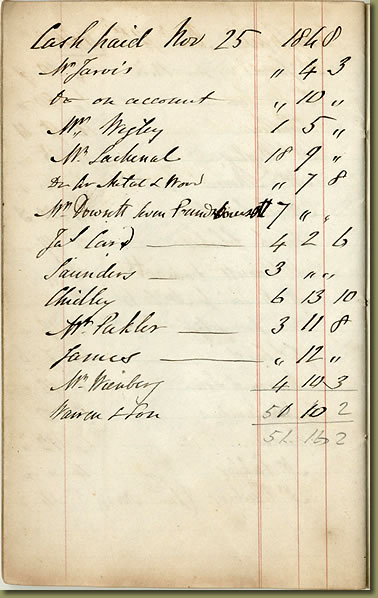 Cash paid Nov 25 1848
Mr Jarvis " 4 3
Do on account " 10 "
Mr Wigley 1 5 "
Mr Lachenal 18 9 "
Do for Metal & Wood " 7 8
Mr Dowsett seven 7 " "
Jas Card 4 2 6
Saunders 3 " "
Chidley 6 13 10
Mr Pakler 3 11 8
James " 12 "
Mr Weinberg 4 10 3
Warren & Son 51 10 2
51 16 2